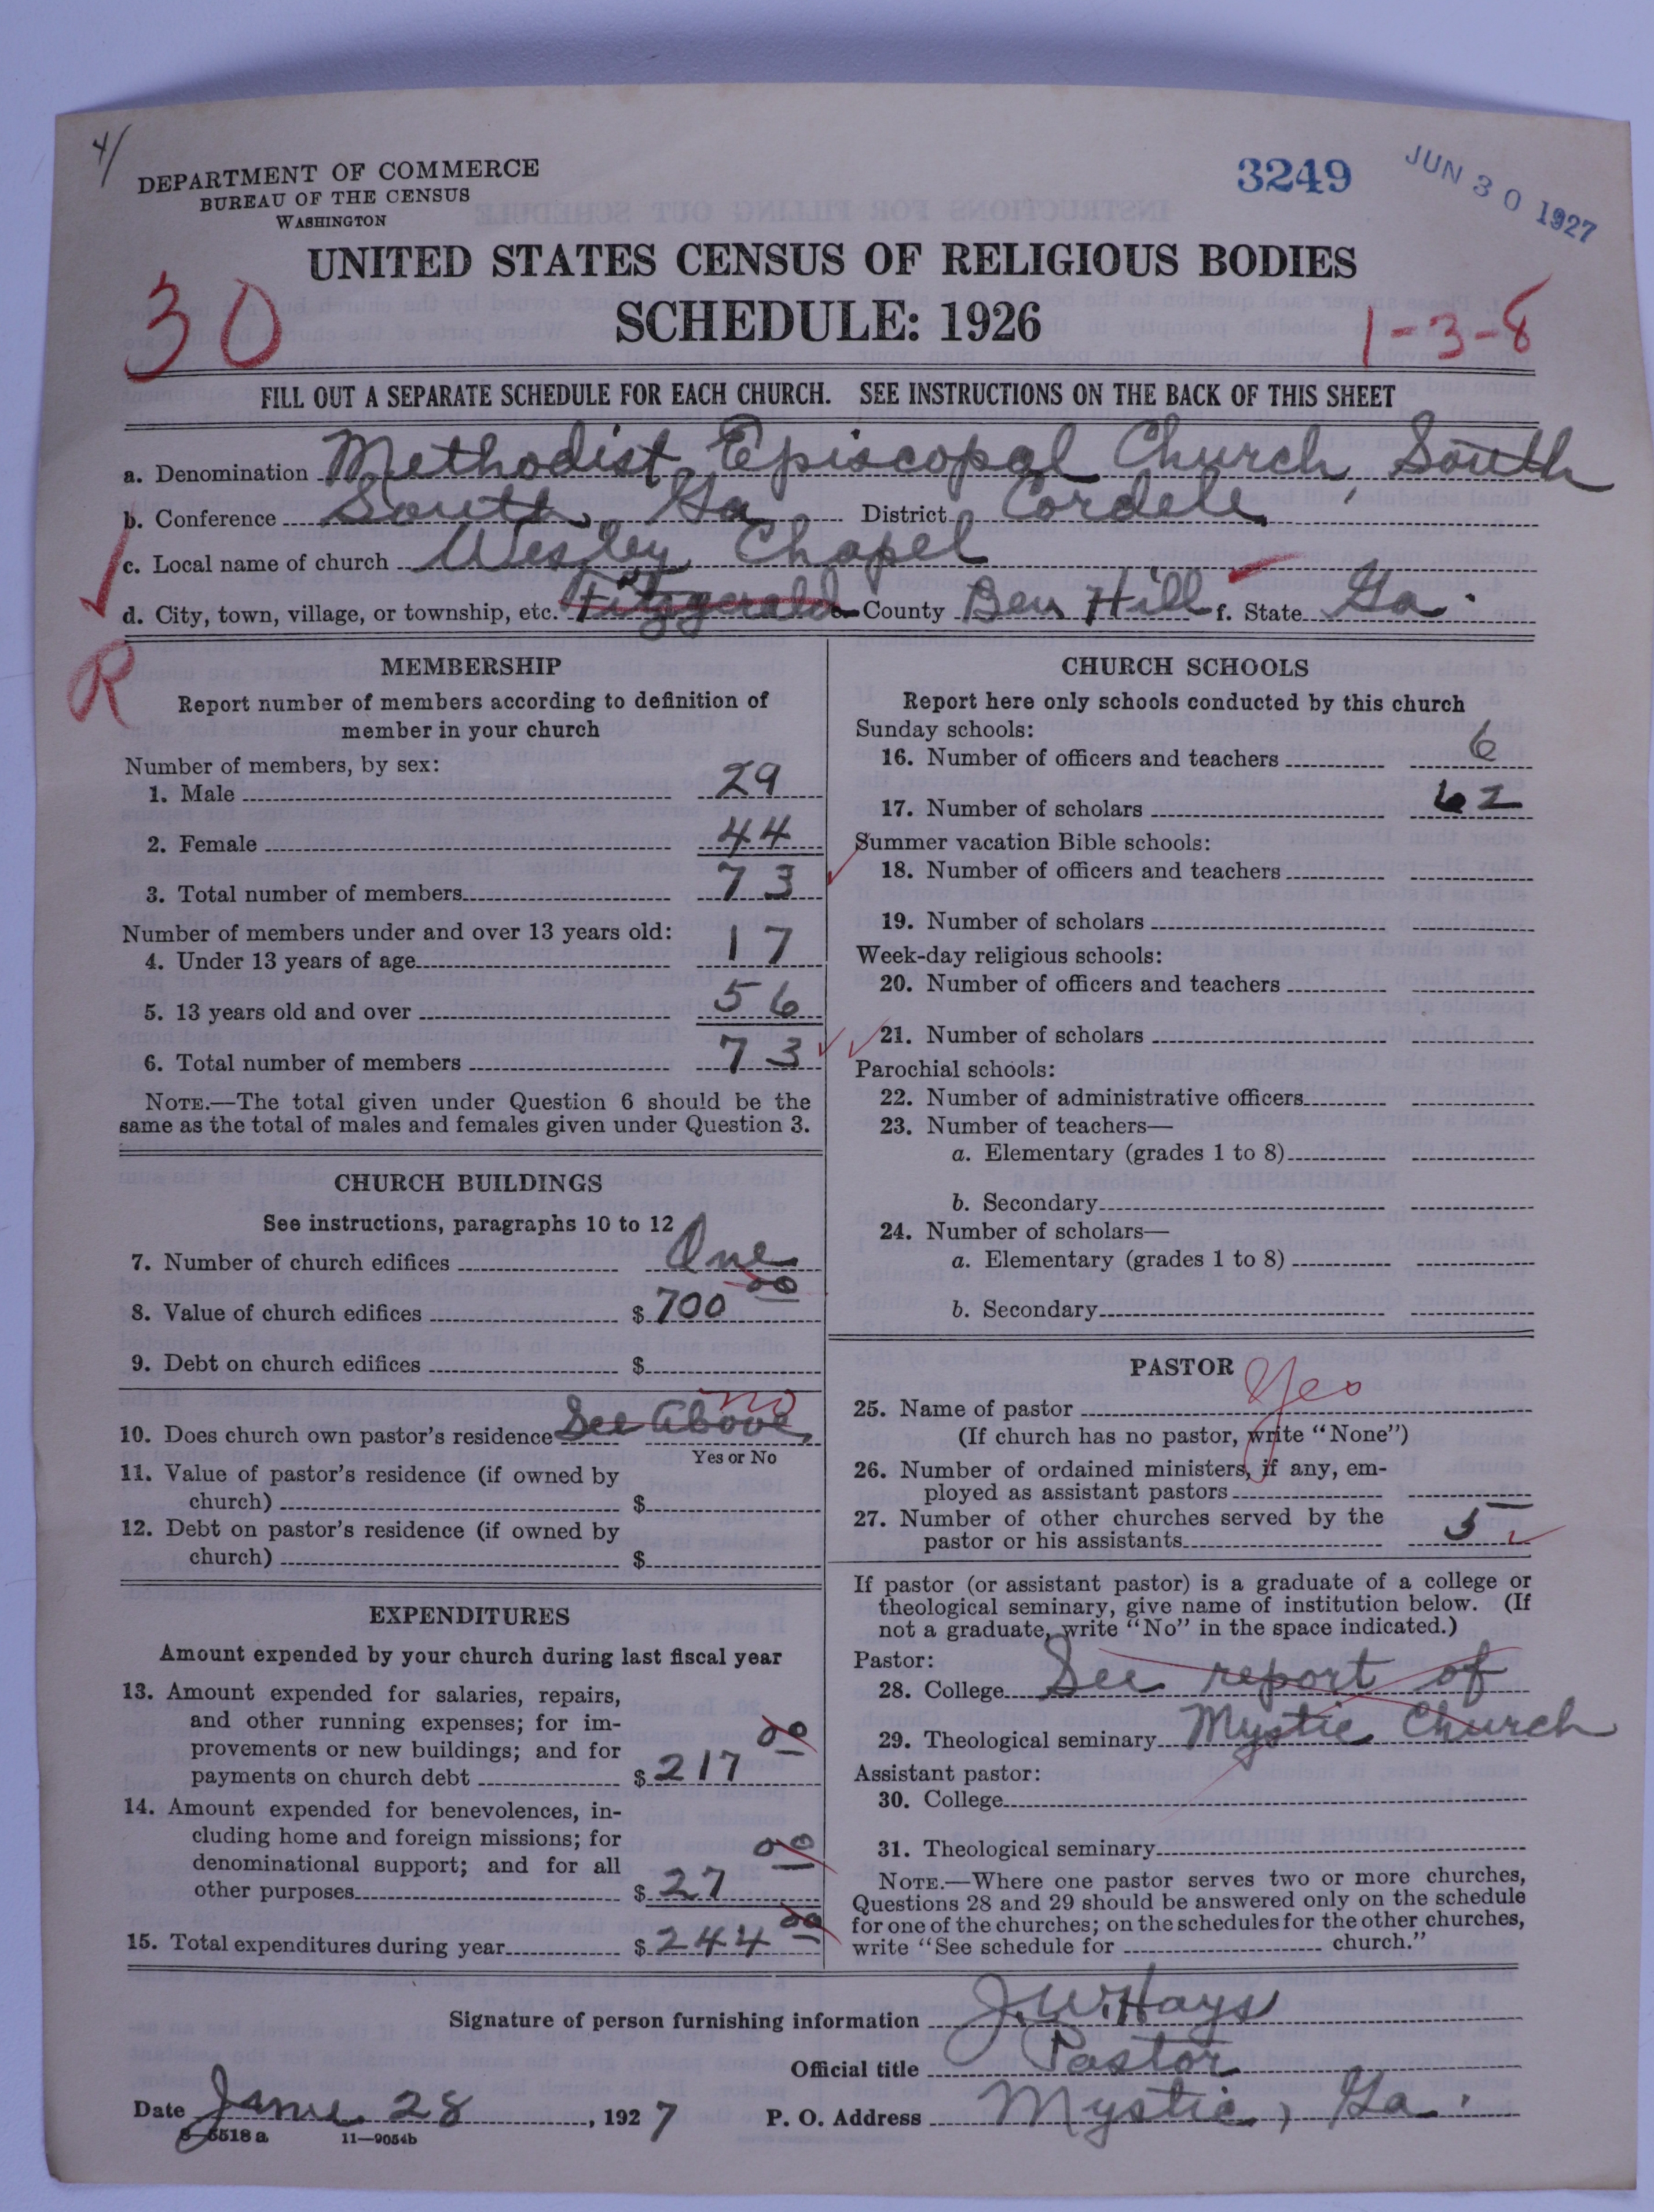 4/
DEPARTMENT OF COMMERCE
BUREAU OF THE CENSUS
WASHINGTON
3249
JUN 30 1927
UNITED STATES CENSUS OF RELIGIOUS BODIES
SCHEDULE: 1926
30
1-3-8
FILL OUT A SEPARATE SCHEDULE FOR EACH CHURCH. SEE INSTRUCTIONS ON THE BACK OF THIS SHEET
a. Denomination Methodist Episcopal Church, South
b. Conference South Ga District Cordele
c. Local name of church Wesley Chapel
d. City, town, village, or township, etc. Fitzgerald e. County Ben Hill f. State Ga.
R
MEMBERSHIP
Report number of members according to definition of
member in your church
Number of members, by sex:
1. Male 29
2. Female 44
3. Total number of members 73
Number of members under and over 13 years old:
4. Under 13 years of age 17
5. 13 years old and over 56
6. Total number of members 73
NOTE.—The total given under Question 6 should be the
same as the total of males and females given under Question 3.
CHURCH BUILDINGS
See instructions, paragraphs 10 to 12
7. Number of church edifices One
8. Value of church edifices $ 700 00
9. Debt on church edifices $
10. Does church own pastor's residence See Above no
Yes or No
11. Value of pastor's residence (if owned by
church) $
12. Debt on pastor's residence (if owned by
church) $
EXPENDITURES
Amount expended by your church during last fiscal year
13. Amount expended for salaries, repairs,
and other running expenses; for im-
provements or new buildings; and for
payments on church debt $ 217 00
14. Amount expended for benevolences, in-
cluding home and foreign missions; for
denominational support; and for all
other purposes $ 27 00
15. Total expenditures during year $ 244 00
CHURCH SCHOOLS
Report here only schools conducted by this church
Sunday schools:
16. Number of officers and teachers 6
17. Number of scholars 62
Summer vacation Bible schools:
18. Number of officers and teachers
19. Number of scholars
Week-day religious schools:
20. Number of officers and teachers
21. Number of scholars
Parochial schools:
22. Number of administrative officers
23. Number of teachers—
a. Elementary (grades 1 to 8)
b. Secondary
24. Number of scholars—
a. Elementary (grades 1 to 8)
b. Secondary
PASTOR
25. Name of pastor Yes
(If church has no pastor, write "None")
26. Number of ordained ministers, if any, em-
ployed as assistant pastors
27. Number of other churches served by the
pastor or his assistants 5
If pastor (or assistant pastor) is a graduate of a college or
theological seminary, give name of institution below. (If
not a graduate, write "No" in the space indicated.)
Pastor:
28. College See report of
29. Theological seminary Mystic Church
Assistant pastor:
30. College
31. Theological seminary
NOTE.—Where one pastor serves two or more churches,
Questions 28 and 29 should be answered only on the schedule
for one of the churches; on the schedules for the other churches,
write "See schedule for church."
Signature of person furnishing information J.W. Hays
Official title Pastor
Date June 28, 1927 P. O. Address Mystic, Ga.
8-5518a 11-9054b